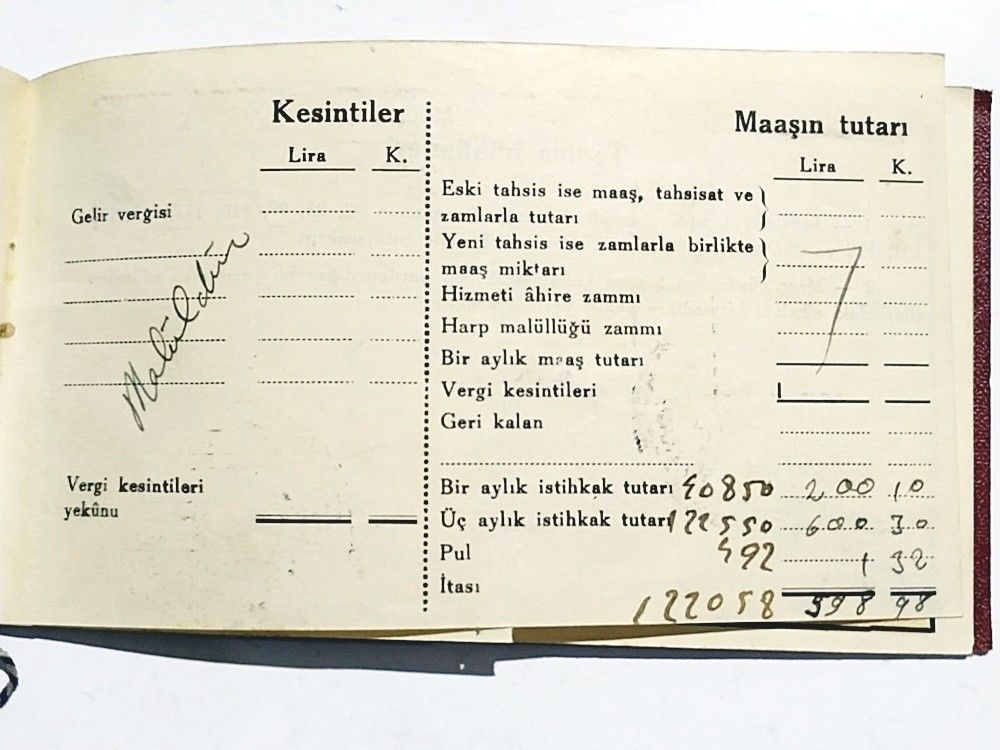 Kesintiler
Lira K.
Gelir vergisi
Malüldür
Vergi kesintileri
yekûnu
Maaşın tutarı
Lira K.
Eski tahsis ise maaş, tahsisat ve
zamlarla tutarı
Yeni tahsis ise zamlarla birlikte
maaş miktarı
Hizmeti âhire zammı
Harp malüllüğü zammı
Bir aylık maaş tutarı
Vergi kesintileri
Geri kalan
Bir aylık istihkak tutarı 40850 200 10
Üç aylık istihkak tutarı 122550 600 30
Pul 492 1 32
İtası
122058 598 98